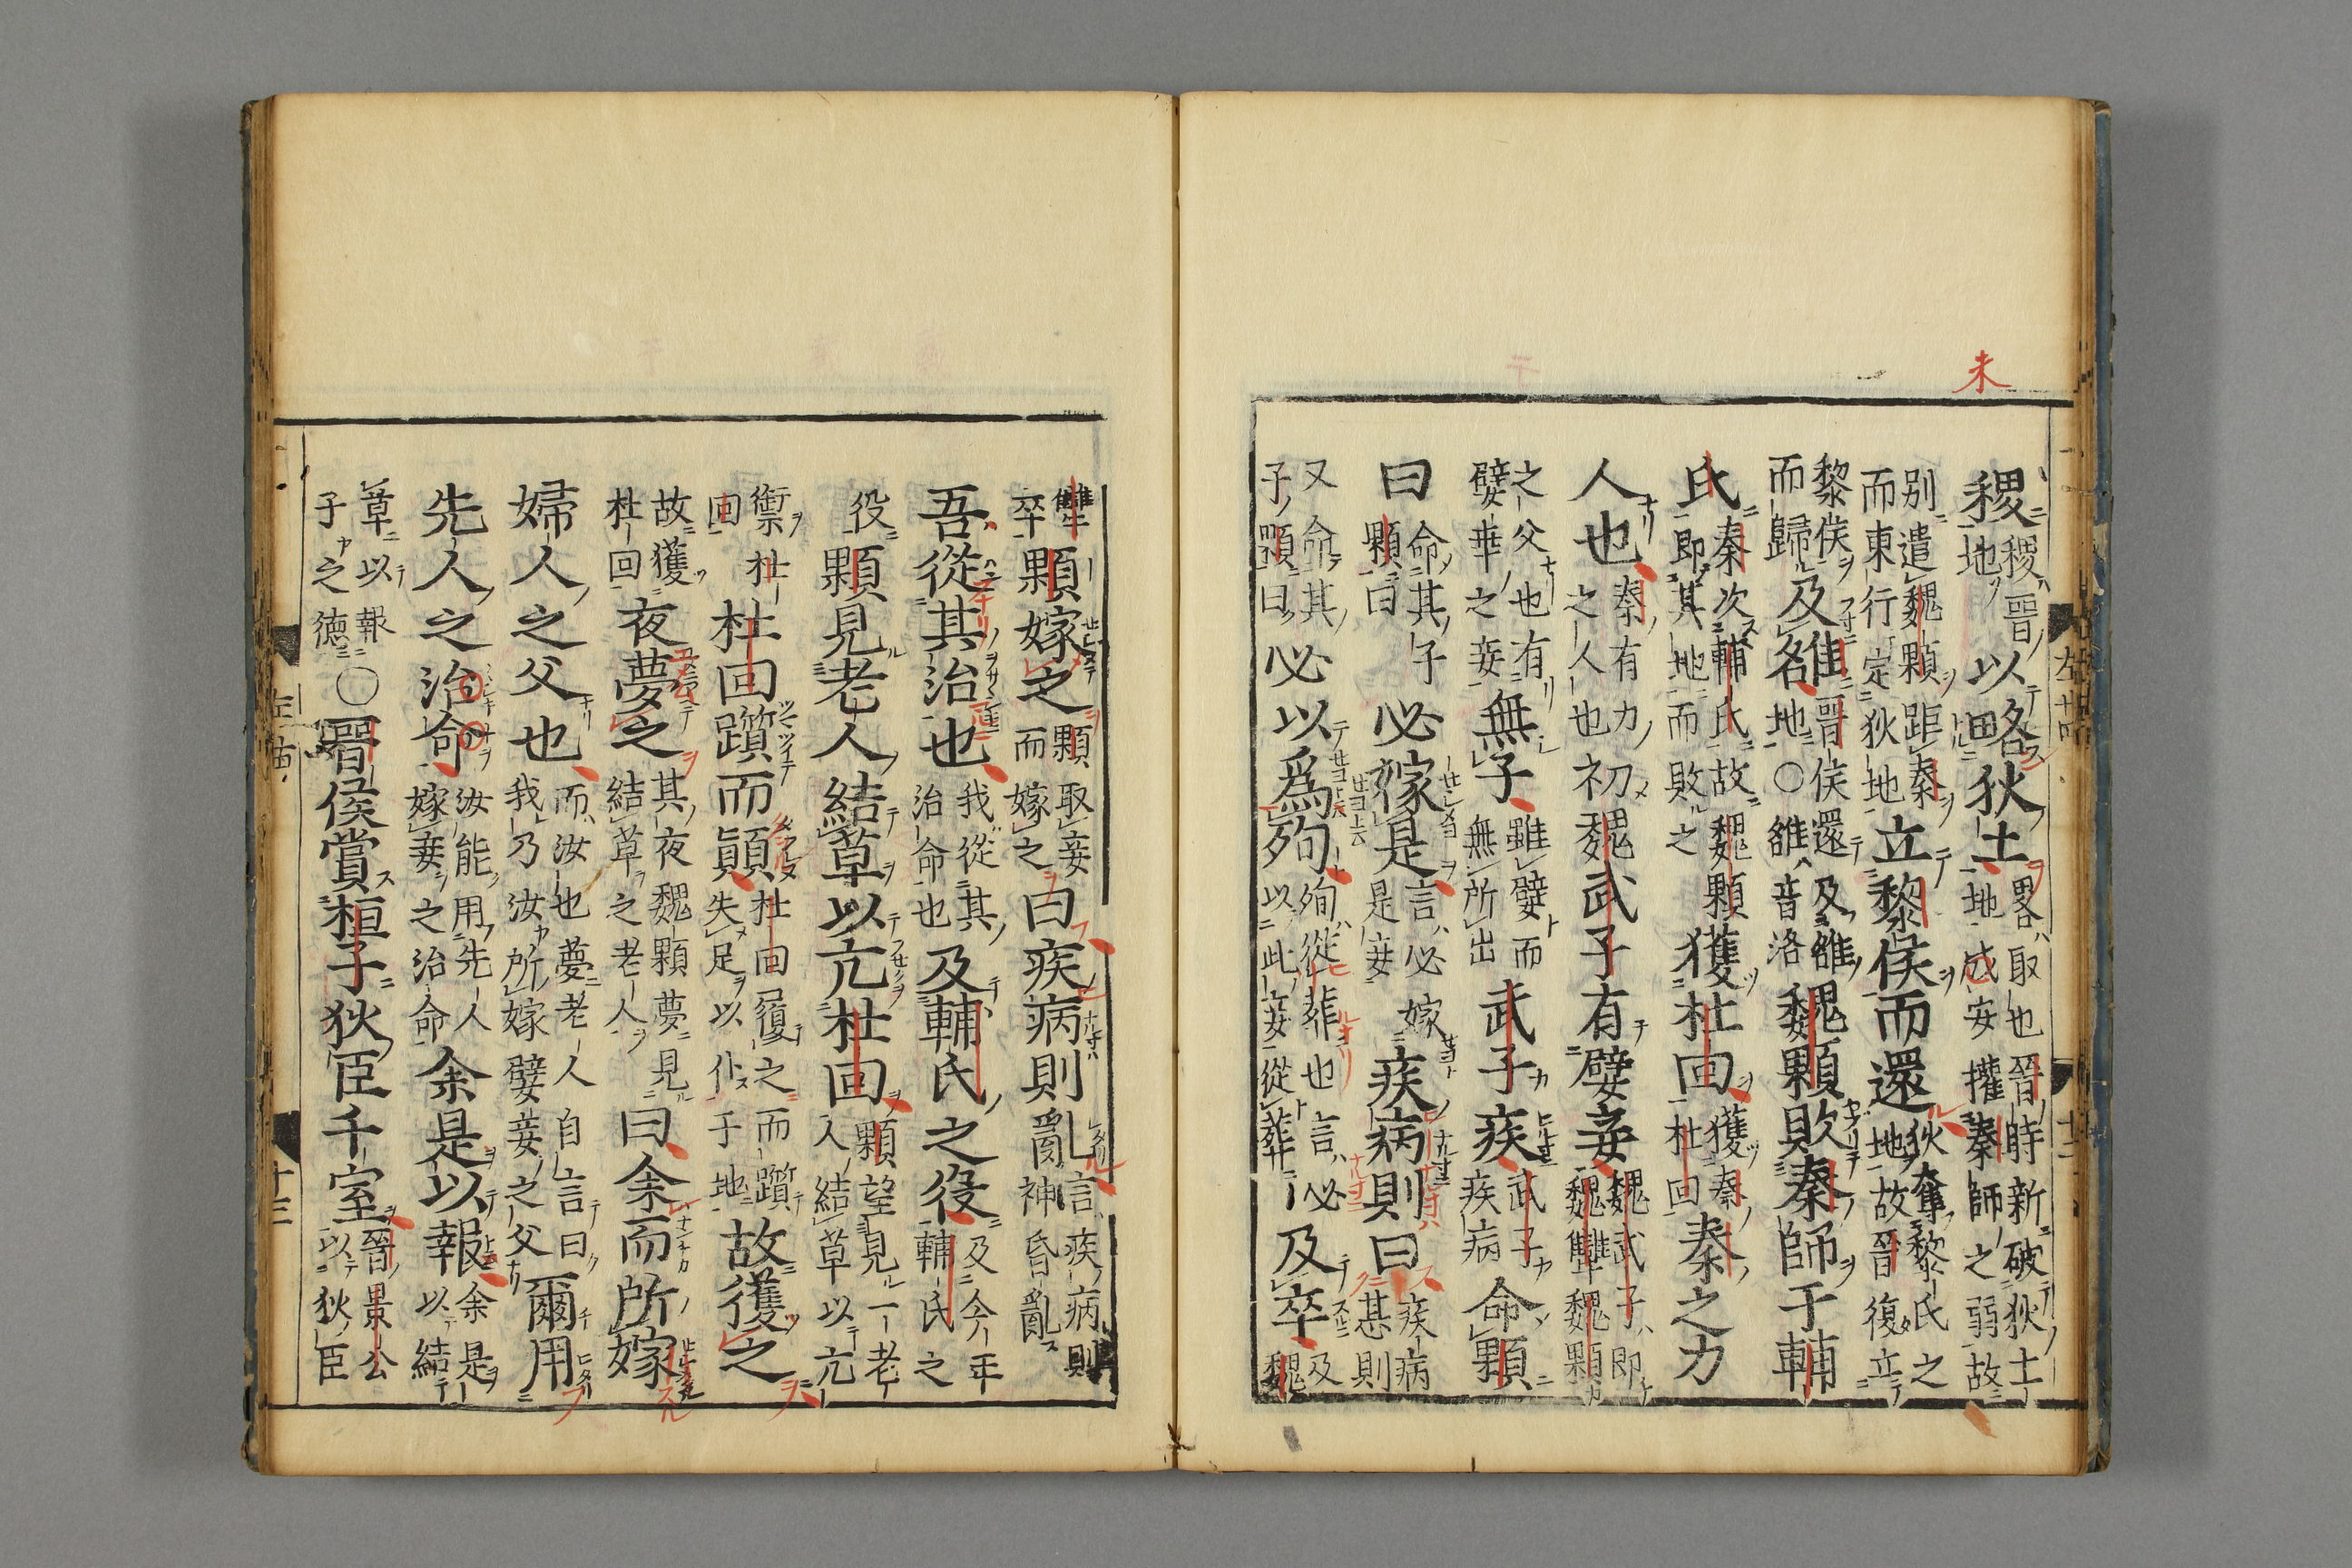 未
稷稷晉地以略狄土畧取也晉時新破狄土地成安權秦師之弱故
別遣魏顆距秦而東行定狄地立黎侯而還狄奪黎氏之地故晉復立
黎侯而歸及雒晉侯還及雒名地〇雒音洛魏顆敗秦師于輔
氏秦次輔氏故魏顆即其地而敗之獲杜回獲秦杜回秦之力
人也秦有力之人也初魏武子有嬖妾魏武子即魏犨魏顆
之父也有嬖幸之妾無子雖嬖而無所出武子疾武子疾病命顆
曰命其子顆曰必嫁是言必嫁是妾疾病則曰疾病甚則
又命其子顆曰必以爲殉殉從葬也言必以此妾從葬及卒及魏
犨卒顆嫁之顆取妾而嫁之曰疾病則亂言疾病則神昏亂
吾從其治也我從其治命也及輔氏之役及今年輔氏之
役顆見老人結草以亢杜回顆望見一老人結草以亢
禦杜回杜回躓而顛杜回履之而躓失足以仆于地故獲之
故獲杜回夜夢之其夜魏顆夢見結草之老人曰余而所嫁
婦人之父也而汝也夢老人自言曰我乃汝所嫁嬖妾之父爾用
先人之治命汝能用先人嫁妾之治命余是以報余是以結
草以報子之德〇晉侯賞桓子狄臣千室晉景公以狄臣
十三